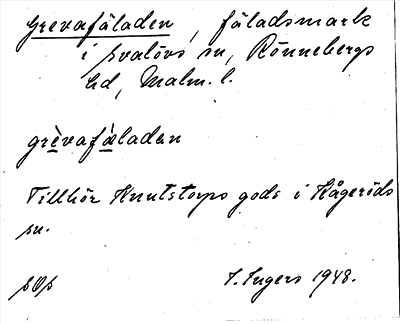 Grevafäladen, fäladsmark
i Svalövs sn, Rönnebergs
hd, Malm. l.
grèvafǽladen
Tillhör Knutstorps gods i Kågeröds
sn.
I. Ingers 1948.